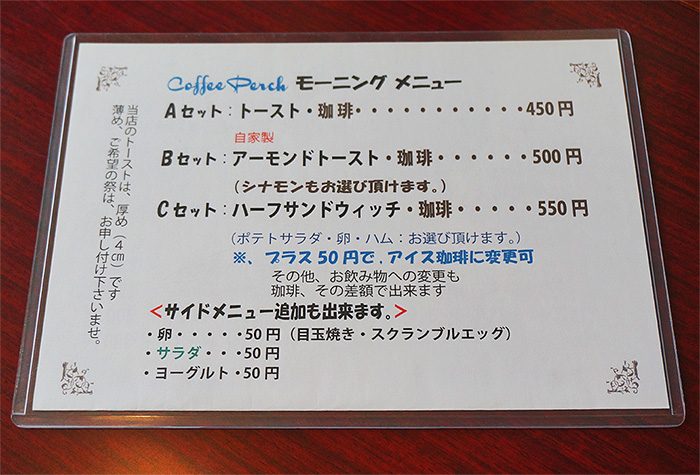 Coffee Perch モーニング メニュー
Aセット：トースト・珈琲・・・・・・・・・・・450円
自家製
Bセット：アーモンドトースト・珈琲・・・・・・500円
（シナモンもお選び頂けます。）
Cセット：ハーフサンドウィッチ・珈琲・・・・・550円
（ポテトサラダ・卵・ハム：お選び頂けます。）
※、プラス50円で、アイス珈琲に変更可
その他、お飲み物への変更も
珈琲、その差額で出来ます
＜サイドメニュー追加も出来ます。＞
・卵・・・・・50円（目玉焼き・スクランブルエッグ）
・サラダ・・・50円
・ヨーグルト・50円
当店のトーストは、厚め（4㎝）です
薄め、ご希望の祭は、お申し付け下さいませ。